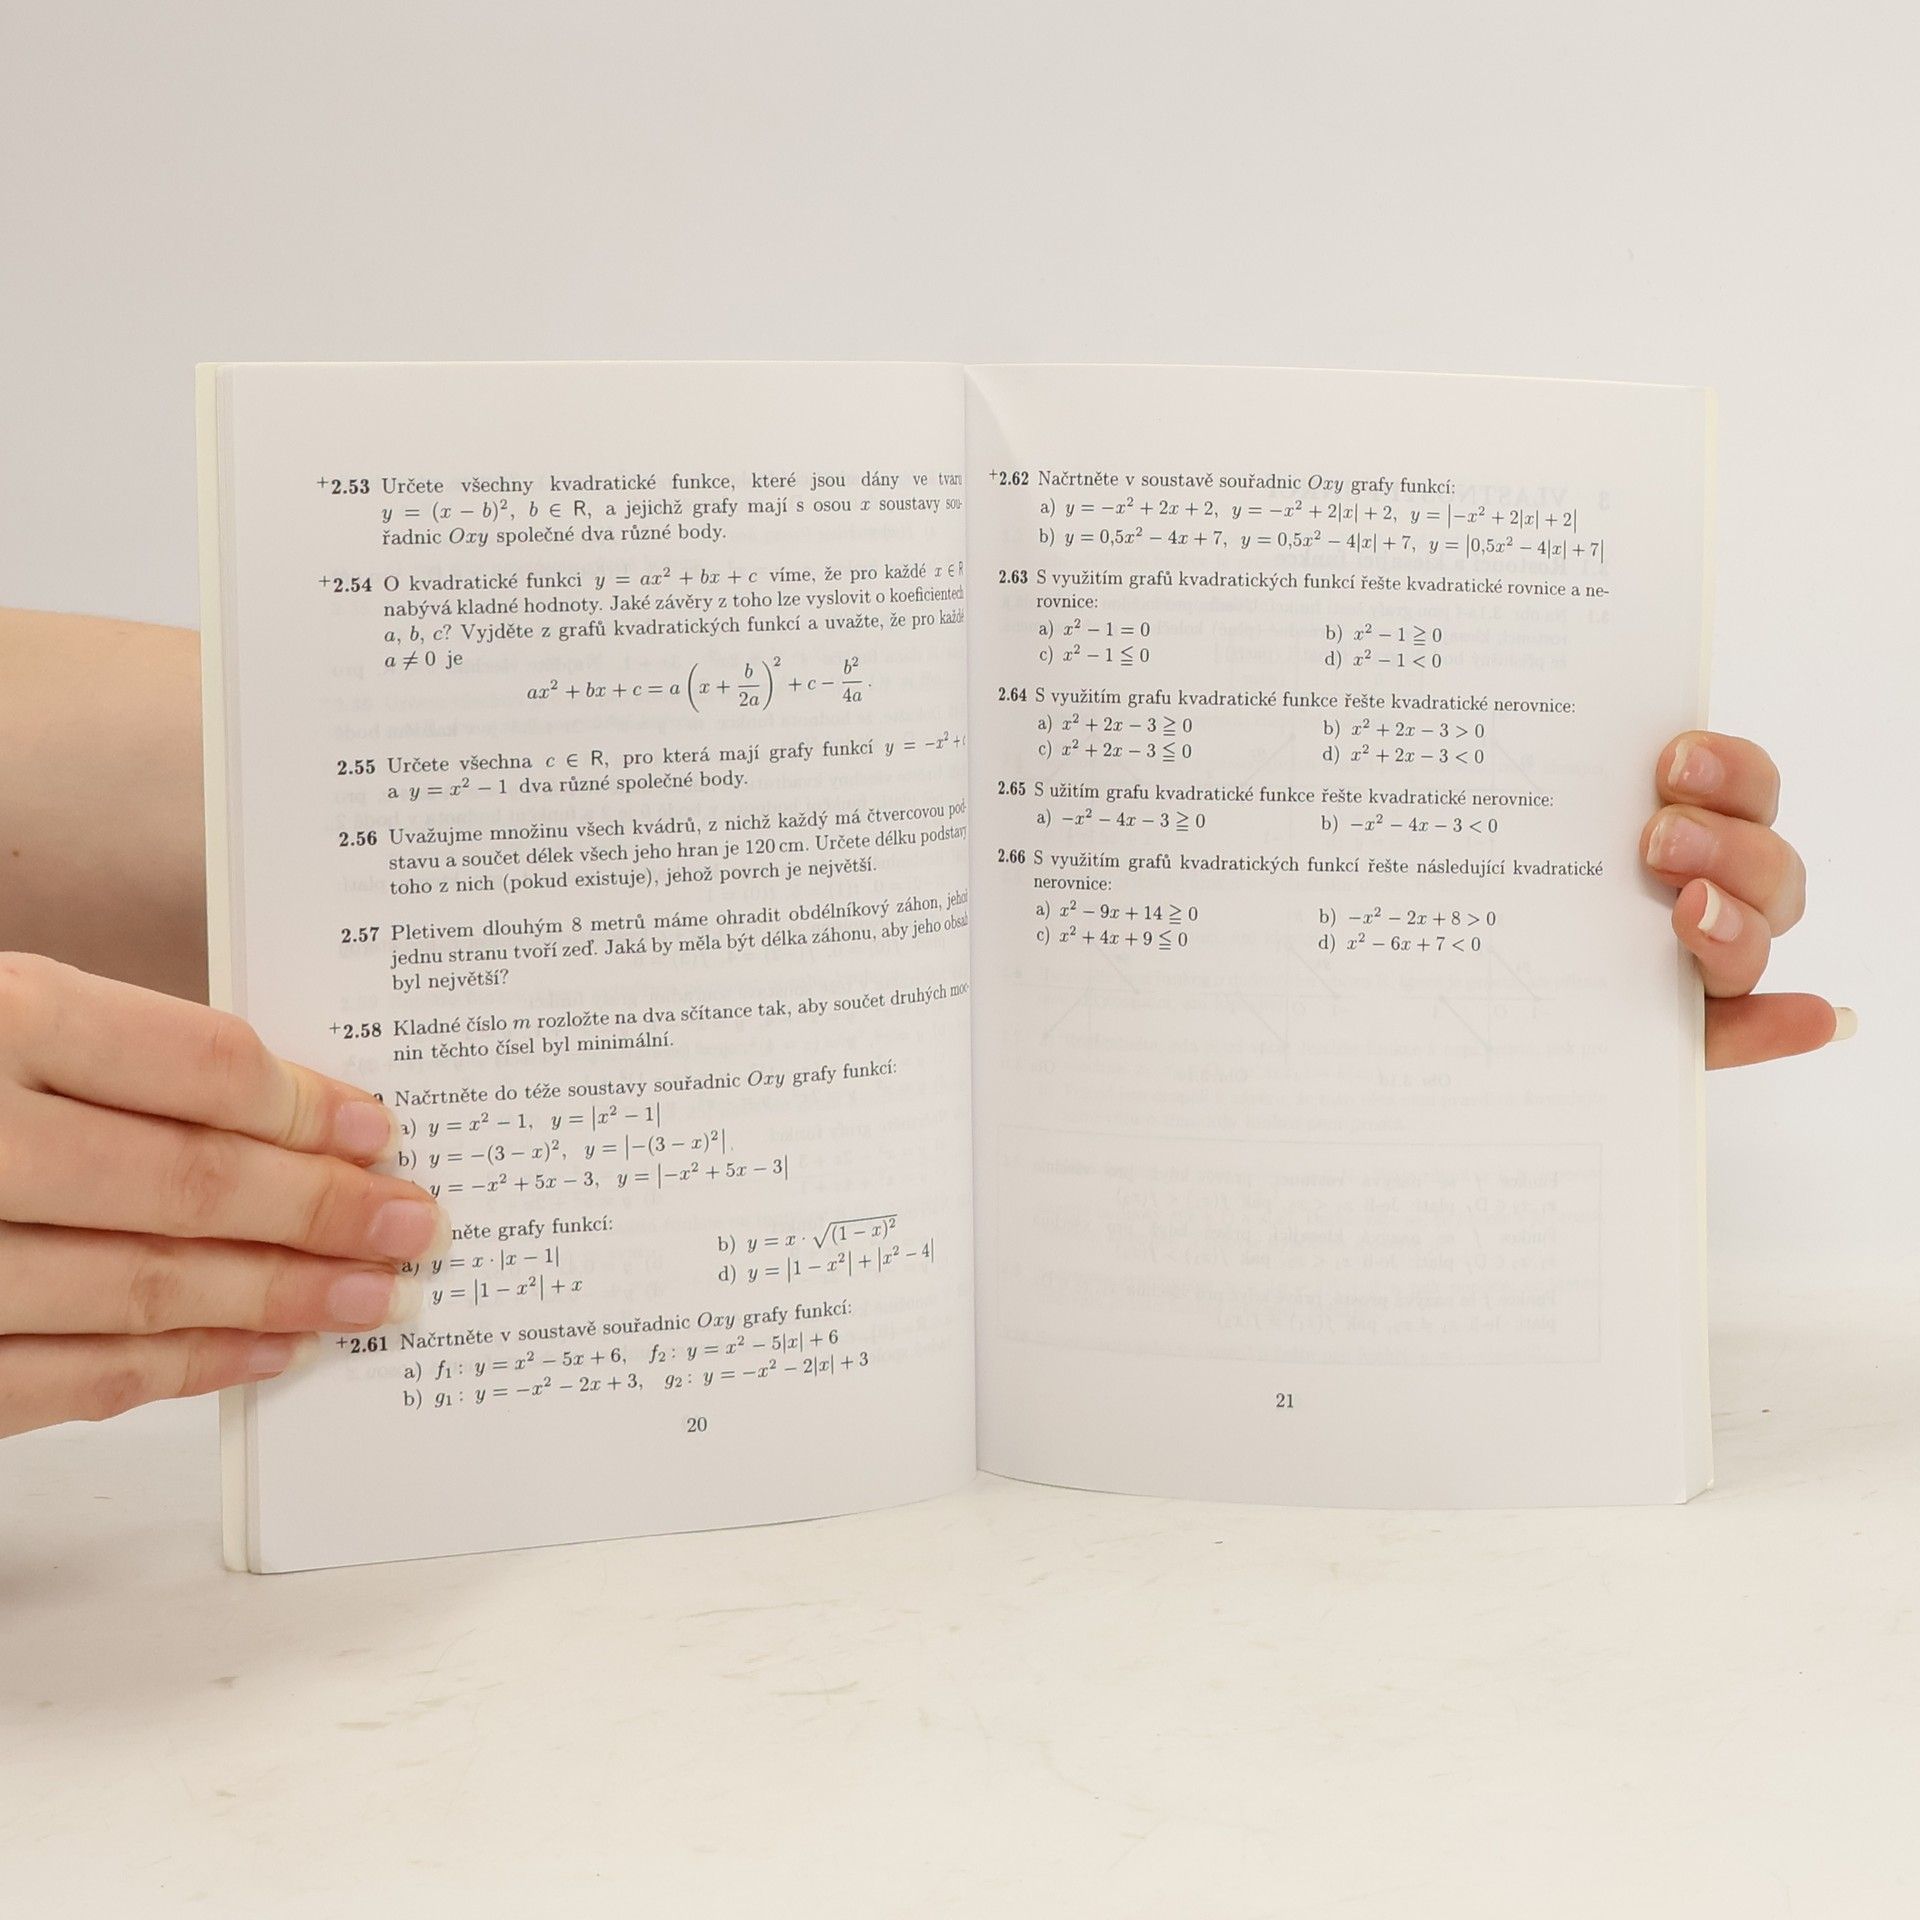 +2.53 Určete všechny kvadratické funkce, které jsou dány ve tvaru
y = (x − b)², b ∈ R, a jejichž grafy mají s osou x soustavy sou-
řadnic Oxy společné dva různé body.
+2.54 O kvadratické funkci y = ax² + bx + c víme, že pro každé x ∈ R
nabývá kladné hodnoty. Jaké závěry z toho lze vyslovit o koeficientech
a, b, c? Vyjděte z grafů kvadratických funkcí a uvažte, že pro každé
a ≠ 0 je
ax² + bx + c = a (x + b/2a)² + c − b²/4a.
2.55 Určete všechna c ∈ R, pro která mají grafy funkcí y = −x² + c
a y = x² − 1 dva různé společné body.
2.56 Uvažujme množinu všech kvádrů, z nichž každý má čtvercovou pod-
stavu a součet délek všech jeho hran je 120 cm. Určete délku podstavy
toho z nich (pokud existuje), jehož povrch je největší.
2.57 Pletivem dlouhým 8 metrů máme ohradit obdélníkový záhon, jehož
jednu stranu tvoří zeď. Jaká by měla být délka záhonu, aby jeho obsah
byl největší?
+2.58 Kladné číslo m rozložte na dva sčítance tak, aby součet druhých moc-
nin těchto čísel byl minimální.
9 Načrtněte do téže soustavy souřadnic Oxy grafy funkcí:
a) y = x² − 1, y = |x² − 1|
b) y = −(3 − x)², y = |−(3 − x)²|
) y = −x² + 5x − 3, y = |−x² + 5x − 3|
něte grafy funkcí:
a) y = x · |x − 1| b) y = x · √(1 − x)²
y = |1 − x²| + x d) y = |1 − x²| + |x² − 4|
+2.61 Načrtněte v soustavě souřadnic Oxy grafy funkcí:
a) f₁ : y = x² − 5x + 6, f₂ : y = x² − 5|x| + 6
b) g₁ : y = −x² − 2x + 3, g₂ : y = −x² − 2|x| + 3
20
+2.62 Načrtněte v soustavě souřadnic Oxy grafy funkcí:
a) y = −x² + 2x + 2, y = −x² + 2|x| + 2, y = |−x² + 2|x| + 2|
b) y = 0,5x² − 4x + 7, y = 0,5x² − 4|x| + 7, y = |0,5x² − 4|x| + 7|
2.63 S využitím grafů kvadratických funkcí řešte kvadratické rovnice a ne-
rovnice:
a) x² − 1 = 0 b) x² − 1 ≧ 0
c) x² − 1 ≦ 0 d) x² − 1 < 0
2.64 S využitím grafu kvadratické funkce řešte kvadratické nerovnice:
a) x² + 2x − 3 ≧ 0 b) x² + 2x − 3 > 0
c) x² + 2x − 3 ≦ 0 d) x² + 2x − 3 < 0
2.65 S užitím grafu kvadratické funkce řešte kvadratické nerovnice:
a) −x² − 4x − 3 ≧ 0 b) −x² − 4x − 3 < 0
2.66 S využitím grafů kvadratických funkcí řešte následující kvadratické
nerovnice:
a) x² − 9x + 14 ≧ 0 b) −x² − 2x + 8 > 0
c) x² + 4x + 9 ≦ 0 d) x² − 6x + 7 < 0
21